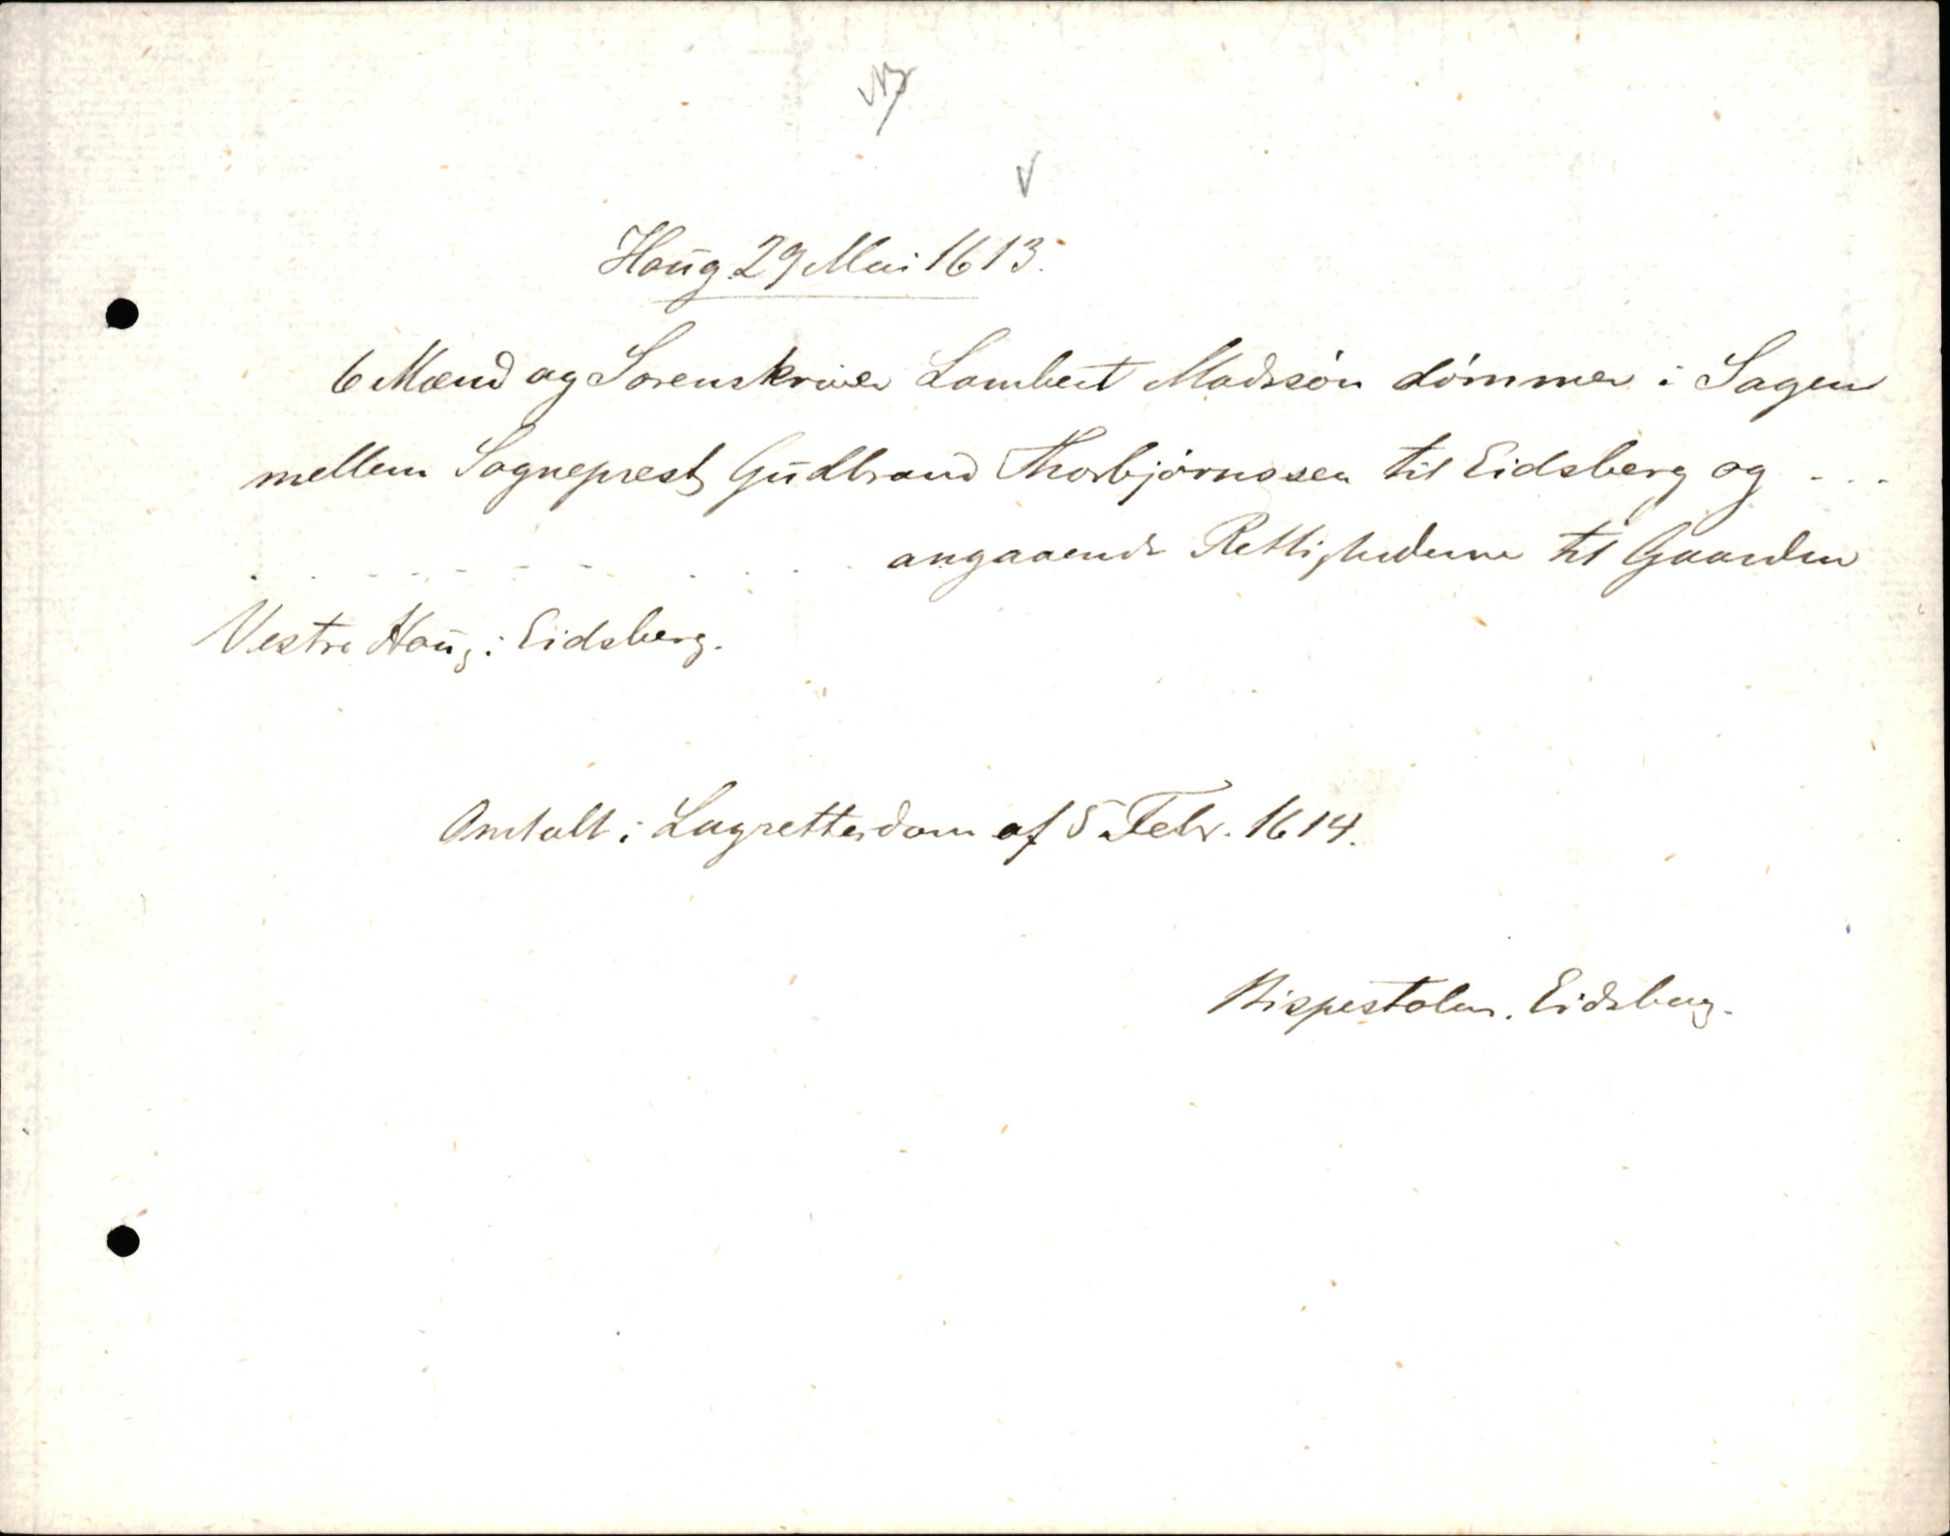 Haug 29 Mai 1613.
6 Mænd og Sorenskriver Lambert Madssön dömmer i Sagen
mellem Sogneprest Gudbrand Thorbjørnssen til Eidsberg og ...
. . . . . . . . . . . . angaaende Rettighederne til Gaarden
Vestre Haug i Eidsberg.
Omtalt i Lagrettesdom af 5 Febr. 1614.
Bispestolen. Eidsberg.